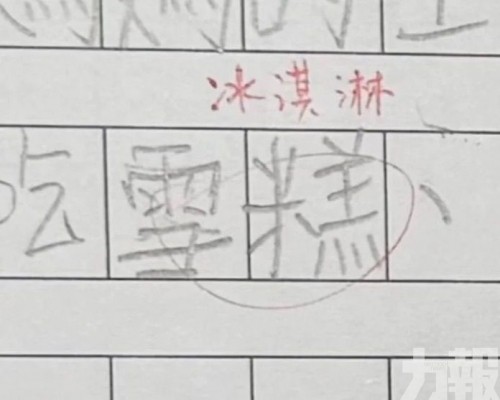 冰淇淋
吃雪糕、
力報